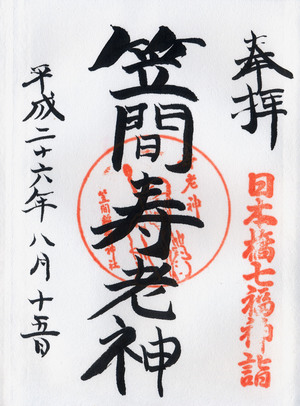 奉拝
日本橋七福神詣
笠間寿老神
平成二十六年八月十五日